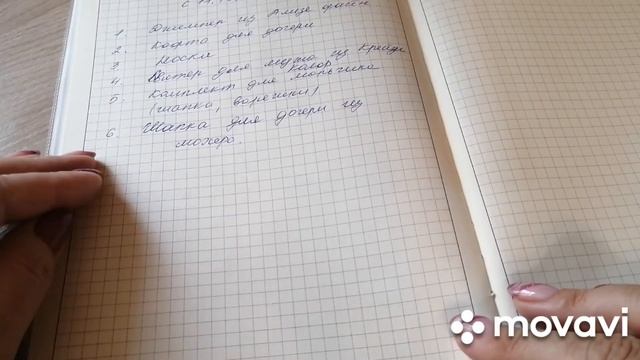 1. Джемпер из Ализе файн
2. Кофта для дочери
3. Носки
4. Свитер для мужа из Крейзи
Колор
5. Комплект для мальчика
(шапка, воротник)
6. Шапка для дочери из
мохера.
movavi